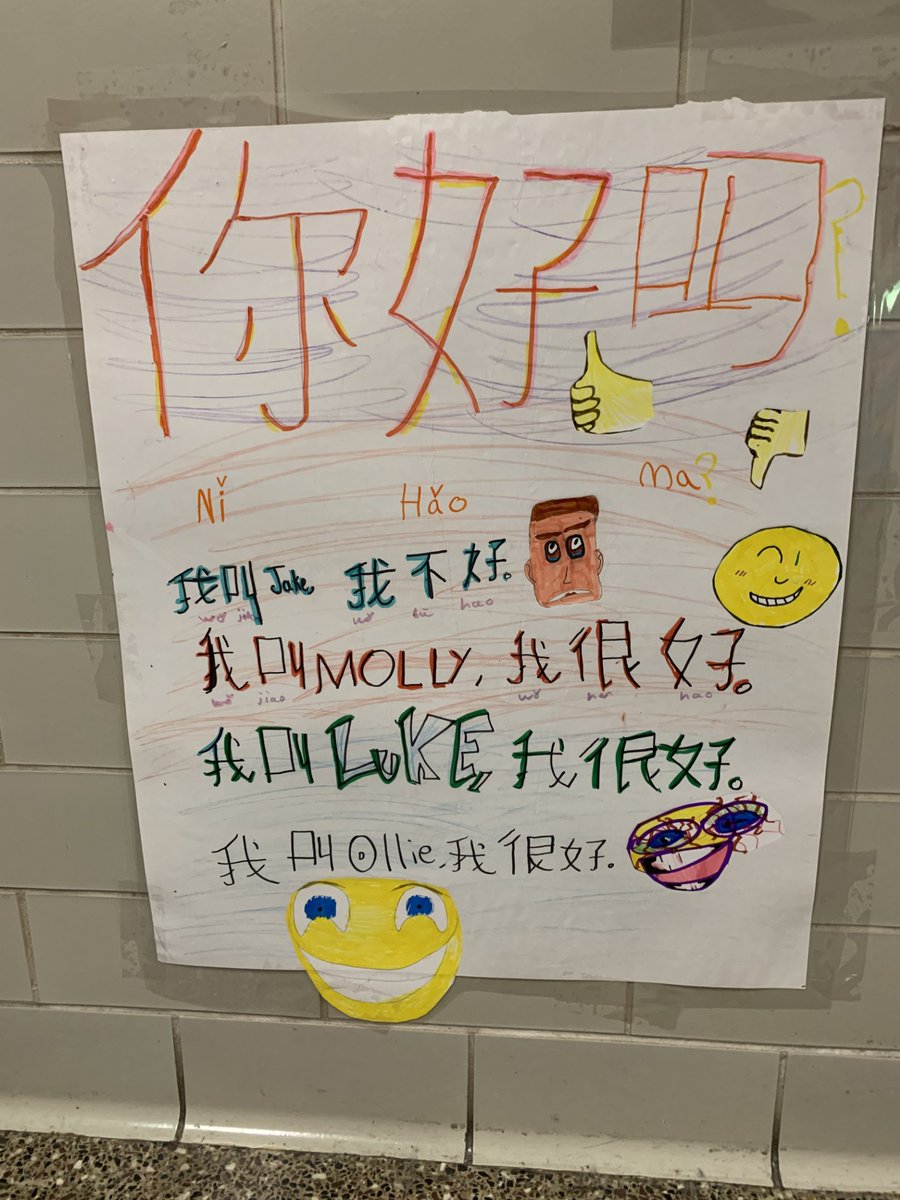 你好吗?
Nǐ Hǎo ma?
我叫Jake, 我不好。
wǒ jiào wǒ bū hao
我叫MOLLY, 我很好。
wǒ jiao wǒ hěn hao
我叫LuKE, 我很好。
我叫Ollie, 我很好.